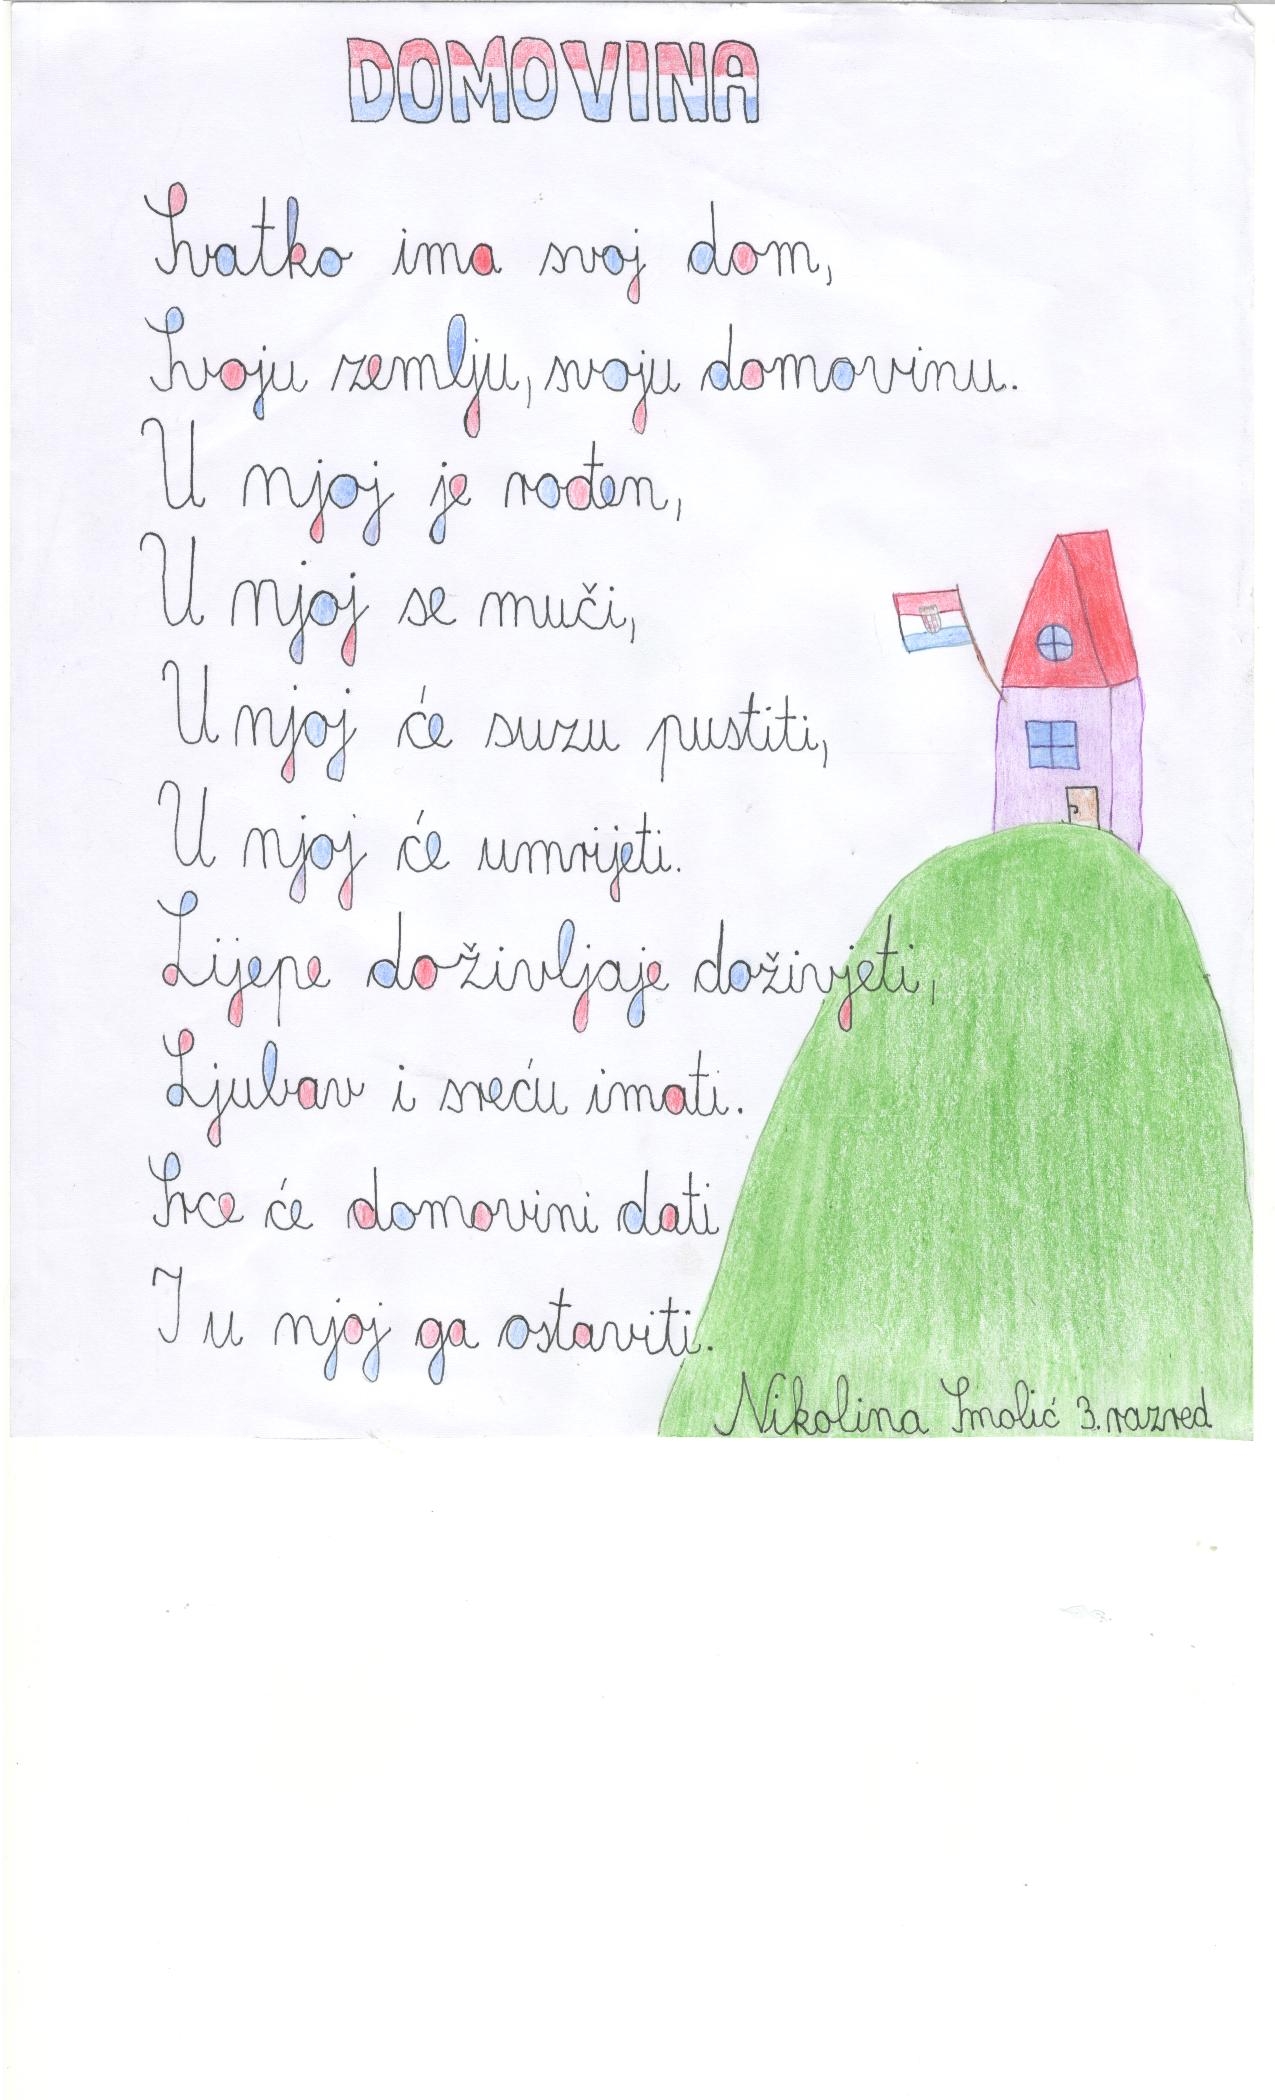 DOMOVINA
Svatko ima svoj dom,
Svoju zemlju, svoju domovinu.
U njoj je rođen,
U njoj se muči,
U njoj će suzu pustiti,
U njoj će umrijeti.
Lijepe doživljaje doživjeti,
Ljubav i sreću imati.
Srce će domovini dati
I u njoj ga ostaviti.
Nikolina Smolić 3. razred